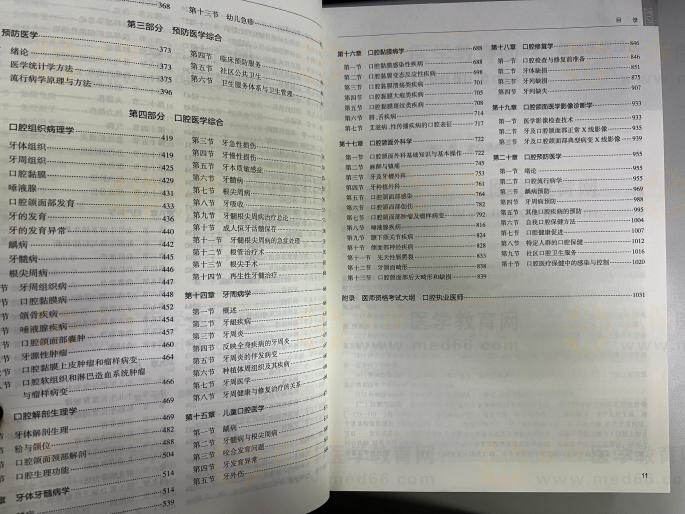 368
第十三节 幼儿急疹
第三部分 预防医学综合
预防医学
373
绪论
373
医学统计学方法
375
流行病学原理与方法
396
第四节 临床预防服务
第五节 社区公共卫生
第六节 卫生服务体系与卫生管理
第四部分 口腔医学综合
口腔组织病理学
419
牙体组织
419
牙周组织
425
口腔黏膜
429
唾液腺
431
口腔颌面部发育
433
牙的发育
436
牙的发育异常
440
龋病
442
牙髓病
445
根尖周病
446
牙周组织病
448
口腔黏膜病
450
颌骨疾病
452
唾液腺疾病
454
口腔颌面部囊肿
457
牙源性肿瘤
460
口腔黏膜上皮肿瘤和瘤样病变
464
口腔软组织和淋巴造血系统肿瘤
与瘤样病变
466
口腔解剖生理学
469
牙体解剖生理
469
𬌗与颌位
482
口腔颌面颈部解剖
488
口腔生理功能
504
牙体牙髓病学
514
514
539
第三节 牙急性损伤
第四节 牙慢性损伤
第五节 牙本质敏感症
第六节 牙髓病
第七节 根尖周病
第八节 牙吸收
第九节 牙髓根尖周病治疗总论
第十节 成人恒牙活髓保存
第十一节 牙髓根尖周病的急症处理
第十二节 根管治疗术
第十三节 根尖手术
第十四节 再生性牙髓治疗
第十四章 牙周病学
第一节 概述
第二节 牙龈疾病
第三节 牙周炎
第四节 反映全身疾病的牙周炎
第五节 牙周炎的伴发病变
第六节 种植体周组织及其疾病
第七节 牙周医学
第八节 牙周健康与修复治疗的关系
第十五章 儿童口腔医学
第一节 龋病
第二节 牙髓病与根尖周病
第三节 咬合发育问题
第四节 牙发育异常
第五节 牙外伤
目 录
第十六章 口腔黏膜病学 688
第一节 口腔黏膜感染性疾病 688
第二节 口腔黏膜变态反应性疾病 698
第三节 口腔黏膜溃疡类疾病 701
第四节 口腔黏膜大疱类疾病 705
第五节 口腔黏膜斑纹类疾病 708
第六节 唇、舌疾病 714
第七节 艾滋病、性传播疾病的口腔表征 717
第十七章 口腔颌面外科学 722
第一节 口腔颌面外科基础知识与基本操作 722
第二节 麻醉与镇痛 745
第三节 牙及牙槽外科 753
第四节 牙种植外科 761
第五节 口腔颌面部感染 764
第六节 口腔颌面部创伤 782
第七节 口腔颌面部肿瘤及瘤样病变 792
第八节 唾液腺疾病 816
第九节 颞下颌关节疾病 824
第十节 颌面部神经疾病 828
第十一节 先天性唇腭裂 833
第十二节 牙颌面畸形 838
第十三节 口腔颌面部后天畸形和缺损 839
附录 医师资格考试大纲 口腔执业医师 1031
第十八章 口腔修复学 846
第一节 口腔检查与修复前准备 846
第二节 牙体缺损 851
第三节 牙列缺损 875
第四节 牙列缺失 907
第十九章 口腔颌面医学影像诊断学 933
第一节 医学影像检查技术 933
第二节 牙及口腔颌面部正常X线影像 935
第三节 牙及口腔颌面部典型病变X线影像 939
第二十章 口腔预防医学 955
第一节 绪论 955
第二节 口腔流行病学 955
第三节 龋病预防 969
第四节 牙周病预防 988
第五节 其他口腔疾病的预防 995
第六节 自我口腔保健方法 1004
第七节 口腔健康促进 1007
第八节 特定人群的口腔保健 1012
第九节 社区口腔卫生服务 1016
第十节 口腔医疗保健中的感染与控制 1020
医学教育网
www.med66.com
11